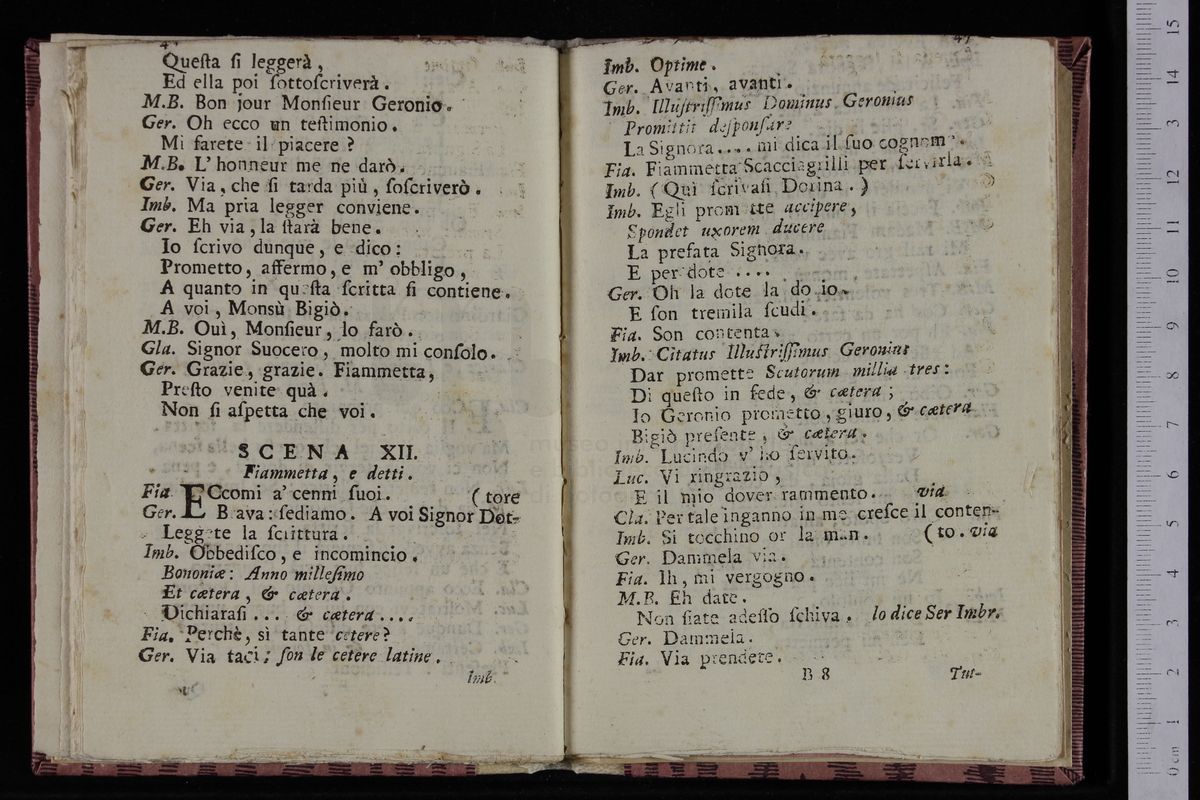 Queſta ſi leggerà,
Ed ella poi ſottoſcriverà.
M.B. Bon jour Monſieur Geronio.
Ger. Oh ecco un teſtimonio.
Mi farete il piacere?
M.B. L'honneur me ne darò.
Ger. Via, che ſi tarda più, ſoſcriverò.
Imb. Ma pria legger conviene.
Ger. Eh via, la ſtarà bene.
Io ſcrivo dunque, e dico:
Prometto, affermo, e m'obbligo,
A quanto in queſta ſcritta ſi contiene.
A voi, Monsù Bigiò.
M.B. Oui, Monſieur, lo farò.
Gla. Signor Suocero, molto mi conſolo.
Ger. Grazie, grazie. Fiammetta,
Preſto venite quà.
Non ſi aſpetta che voi.
SCENA XII.
Fiammetta, e detti.
Fia ECcomi a' cenni ſuoi. (tore
Ger. Brava: ſediamo. A voi Signor Dot-
Leggete la ſcrittura.
Imb. Obbediſco, e incomincio.
Bononiæ: Anno milleſimo
Et cætera, & cætera.
Dichiaraſi... & cætera....
Fia. Perchè, sì tante cetere?
Ger. Via taci; ſon le cetere latine.
Imb.
Imb. Optime.
Ger. Avanti, avanti.
Imb. Illuſtriſſimus Dominus Geronius
Promittit deſponſare
La Signora.... mi dica il ſuo cognome.
Fia. Fiammetta Scacciagrilli per ſervirla.
Imb. (Quì ſcrivaſi Dorina.)
Imb. Egli promette accipere,
Spondet uxorem ducere
La prefata Signora.
E per dote....
Ger. Oh la dote la do io.
E ſon tremila ſcudi.
Fia. Son contenta.
Imb. Citatus Illuſtriſſimus Geronius
Dar promette Scutorum millia tres:
Di queſto in fede, & cætera;
Io Geronio prometto, giuro, & cætera
Bigiò preſente, & cætera.
Imb. Lucindo v'ho ſervito.
Luc. Vi ringrazio,
E il mio dover rammento. via
Cla. Per tale inganno in me creſce il conten-
Imb. Si tocchino or la man. (to. via
Ger. Dammela via.
Fia. Ih, mi vergogno.
M.B. Eh date.
Non ſiate adeſſo ſchiva. lo dice Ser Imbr.
Ger. Dammela.
Fia. Via prendete.
B 8 Tut-